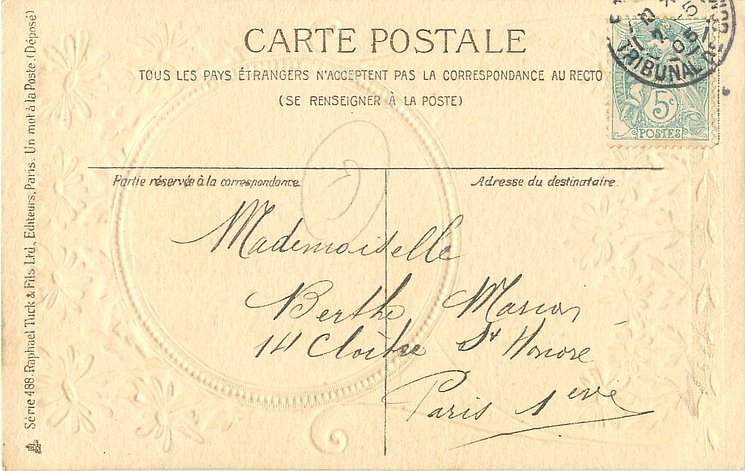 CARTE POSTALE
TOUS LES PAYS ÉTRANGERS N'ACCEPTENT PAS LA CORRESPONDANCE AU RECTO
(SE RENSEIGNER À LA POSTE)
TRIBUNAL
5c
POSTES
Partie réservée à la correspondance.
Adresse du destinataire.
Mademoiselle
Berthe
14 Cloitre St Honoré
Paris 1
Série 488. Raphael Tuck & Fils Ltd., Editeurs, Paris. Un mot à la Poste. (Déposé)